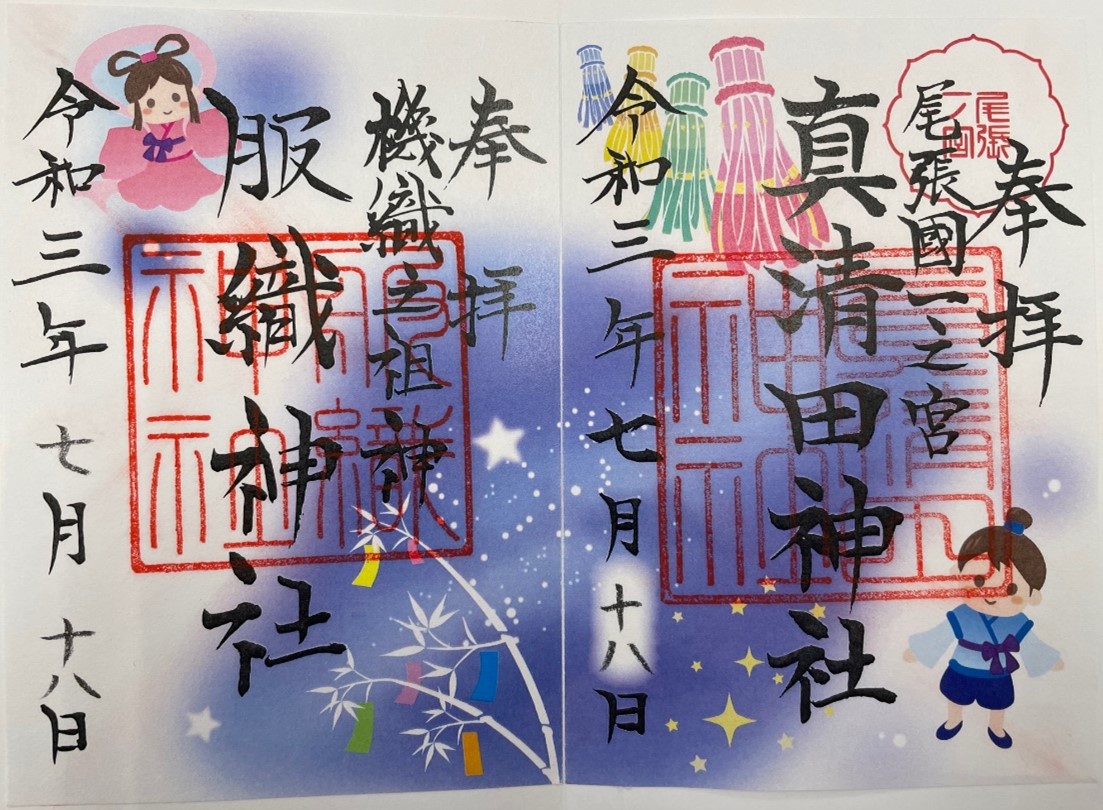 奉拝
尾張國一之宮
真清田神社
令和三年七月十八日
尾張一宮
奉拝
機織之祖神
服織神社
令和三年七月十八日